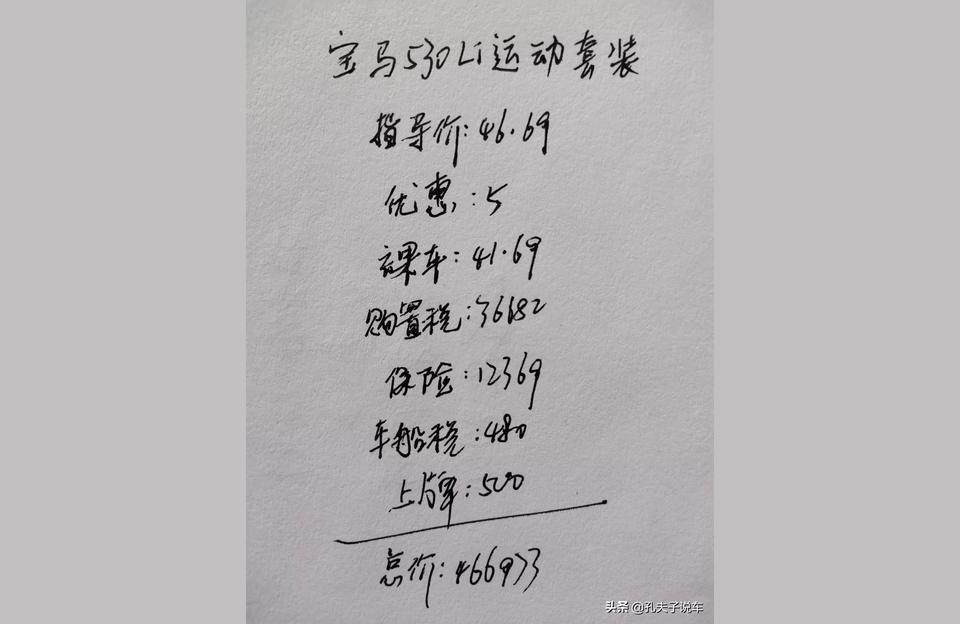 宝马530Li运动套装
指导价:46.69
优惠:5
裸车:41.69
购置税:36682
保险:12369
车船税:480
上牌:500
总价:466933
头条 @孔夫子说车